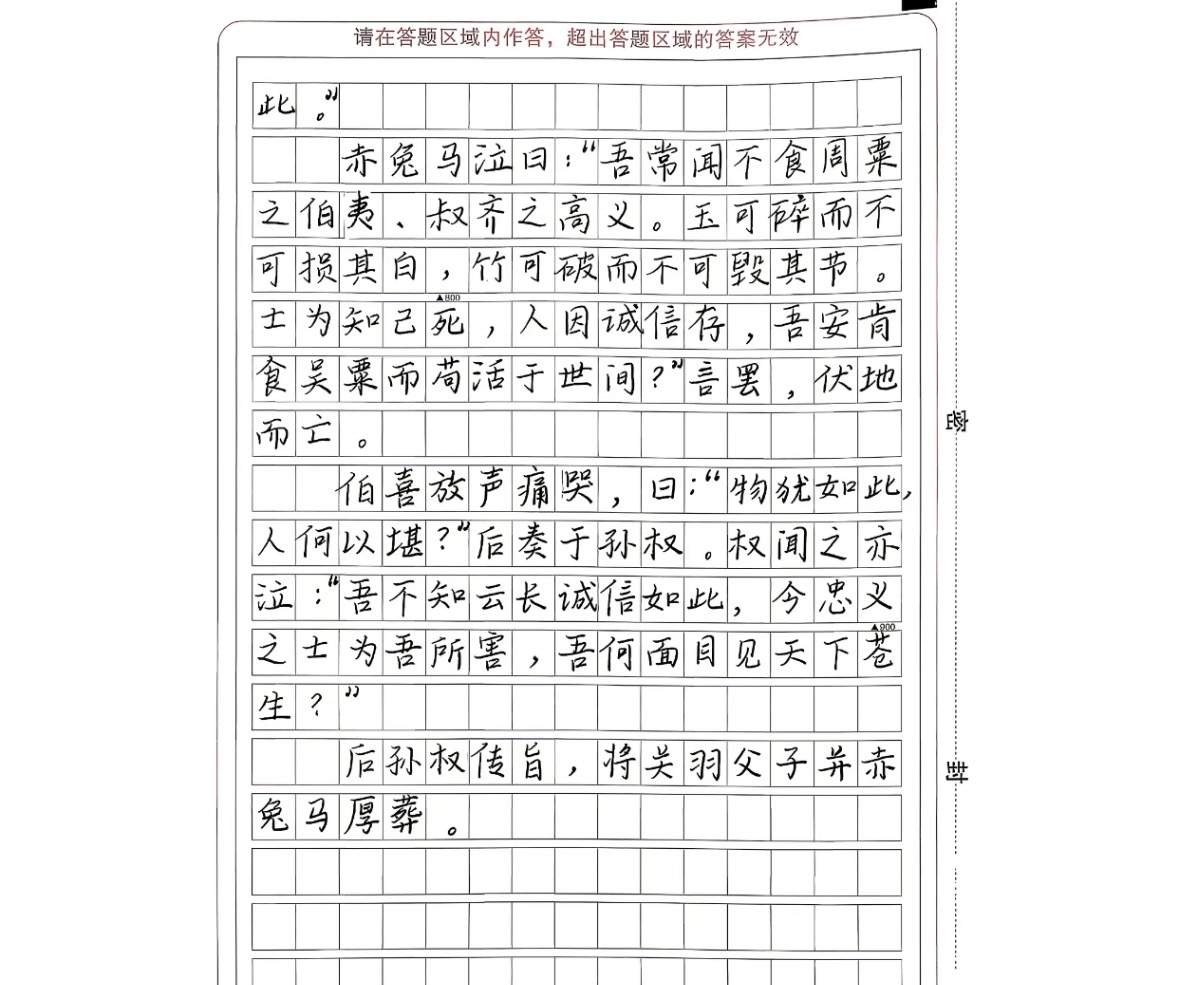 请在答题区域内作答，超出答题区域的答案无效
此。”
赤兔马泣曰：“吾常闻不食周粟
之伯夷、叔齐之高义。玉可碎而不
可损其白，竹可破而不可毁其节。
▲800
士为知己死，人因诚信存，吾安肯
食吴粟而苟活于世间？”言罢，伏地
而亡。
密
伯喜放声痛哭，曰：“物犹如此，
人何以堪？”后奏于孙权。权闻之亦
泣：“吾不知云长诚信如此，今忠义
▲900
之士为吾所害，吾何面目见天下苍
生？”
后孙权传旨，将关羽父子并赤
封
兔马厚葬。